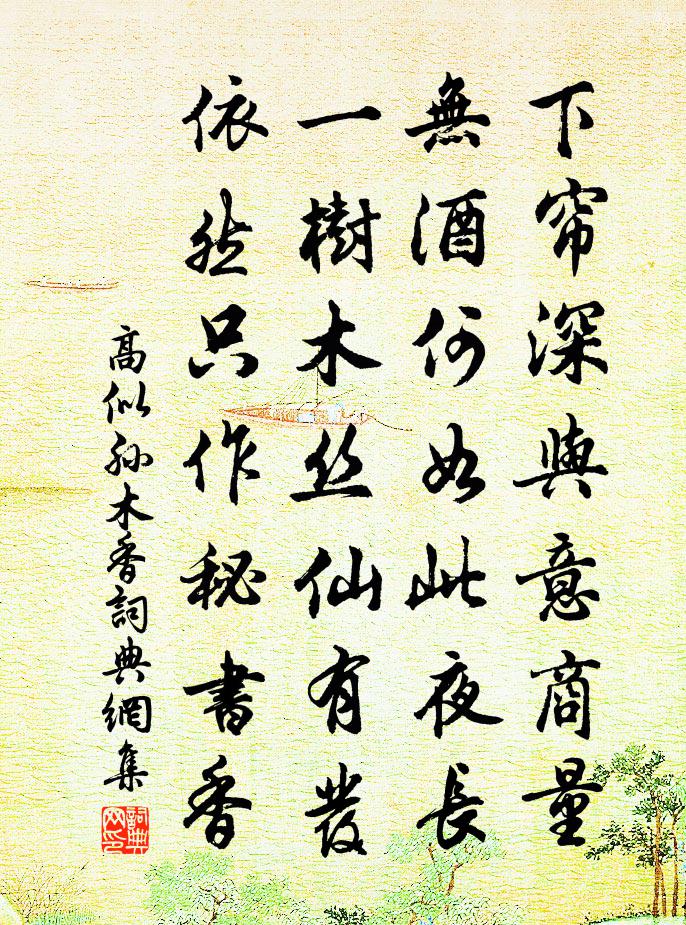 下帘深與意商量
無酒何如此夜長
一樹木丝仙有發
依然只作秘書香
高似孙木香詞典網集
詞典网印